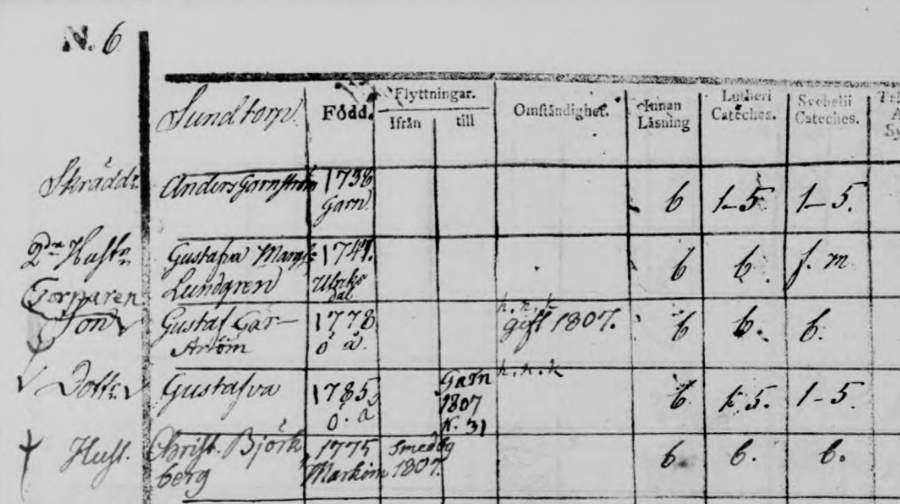 N. 6
Sundtorp. Född. Flyttningar. Omständighet. Innan Läsning Lutheri Cateches. Svebelii Cateches.
Ifrån till
Skrädd. Anders Garnström 1738 Garn. 6 1-5 1-5.
2dra Hustr. Gustafva Margt. 1747. 6 6. f. m
Lundgren Ulriks
dal
Torparen h. n. k
Son Gustaf Gar- 1778 gift 1807. 6 6. 6.
ström ö å.
Dottr. Gustafva 1785 Garn h. n. k 6 1-5. 1-5.
ö. å 1807
N. 31
Hust. Christ. Björk 1775 Smedby 6 6. 6.
berg Markim 1807.